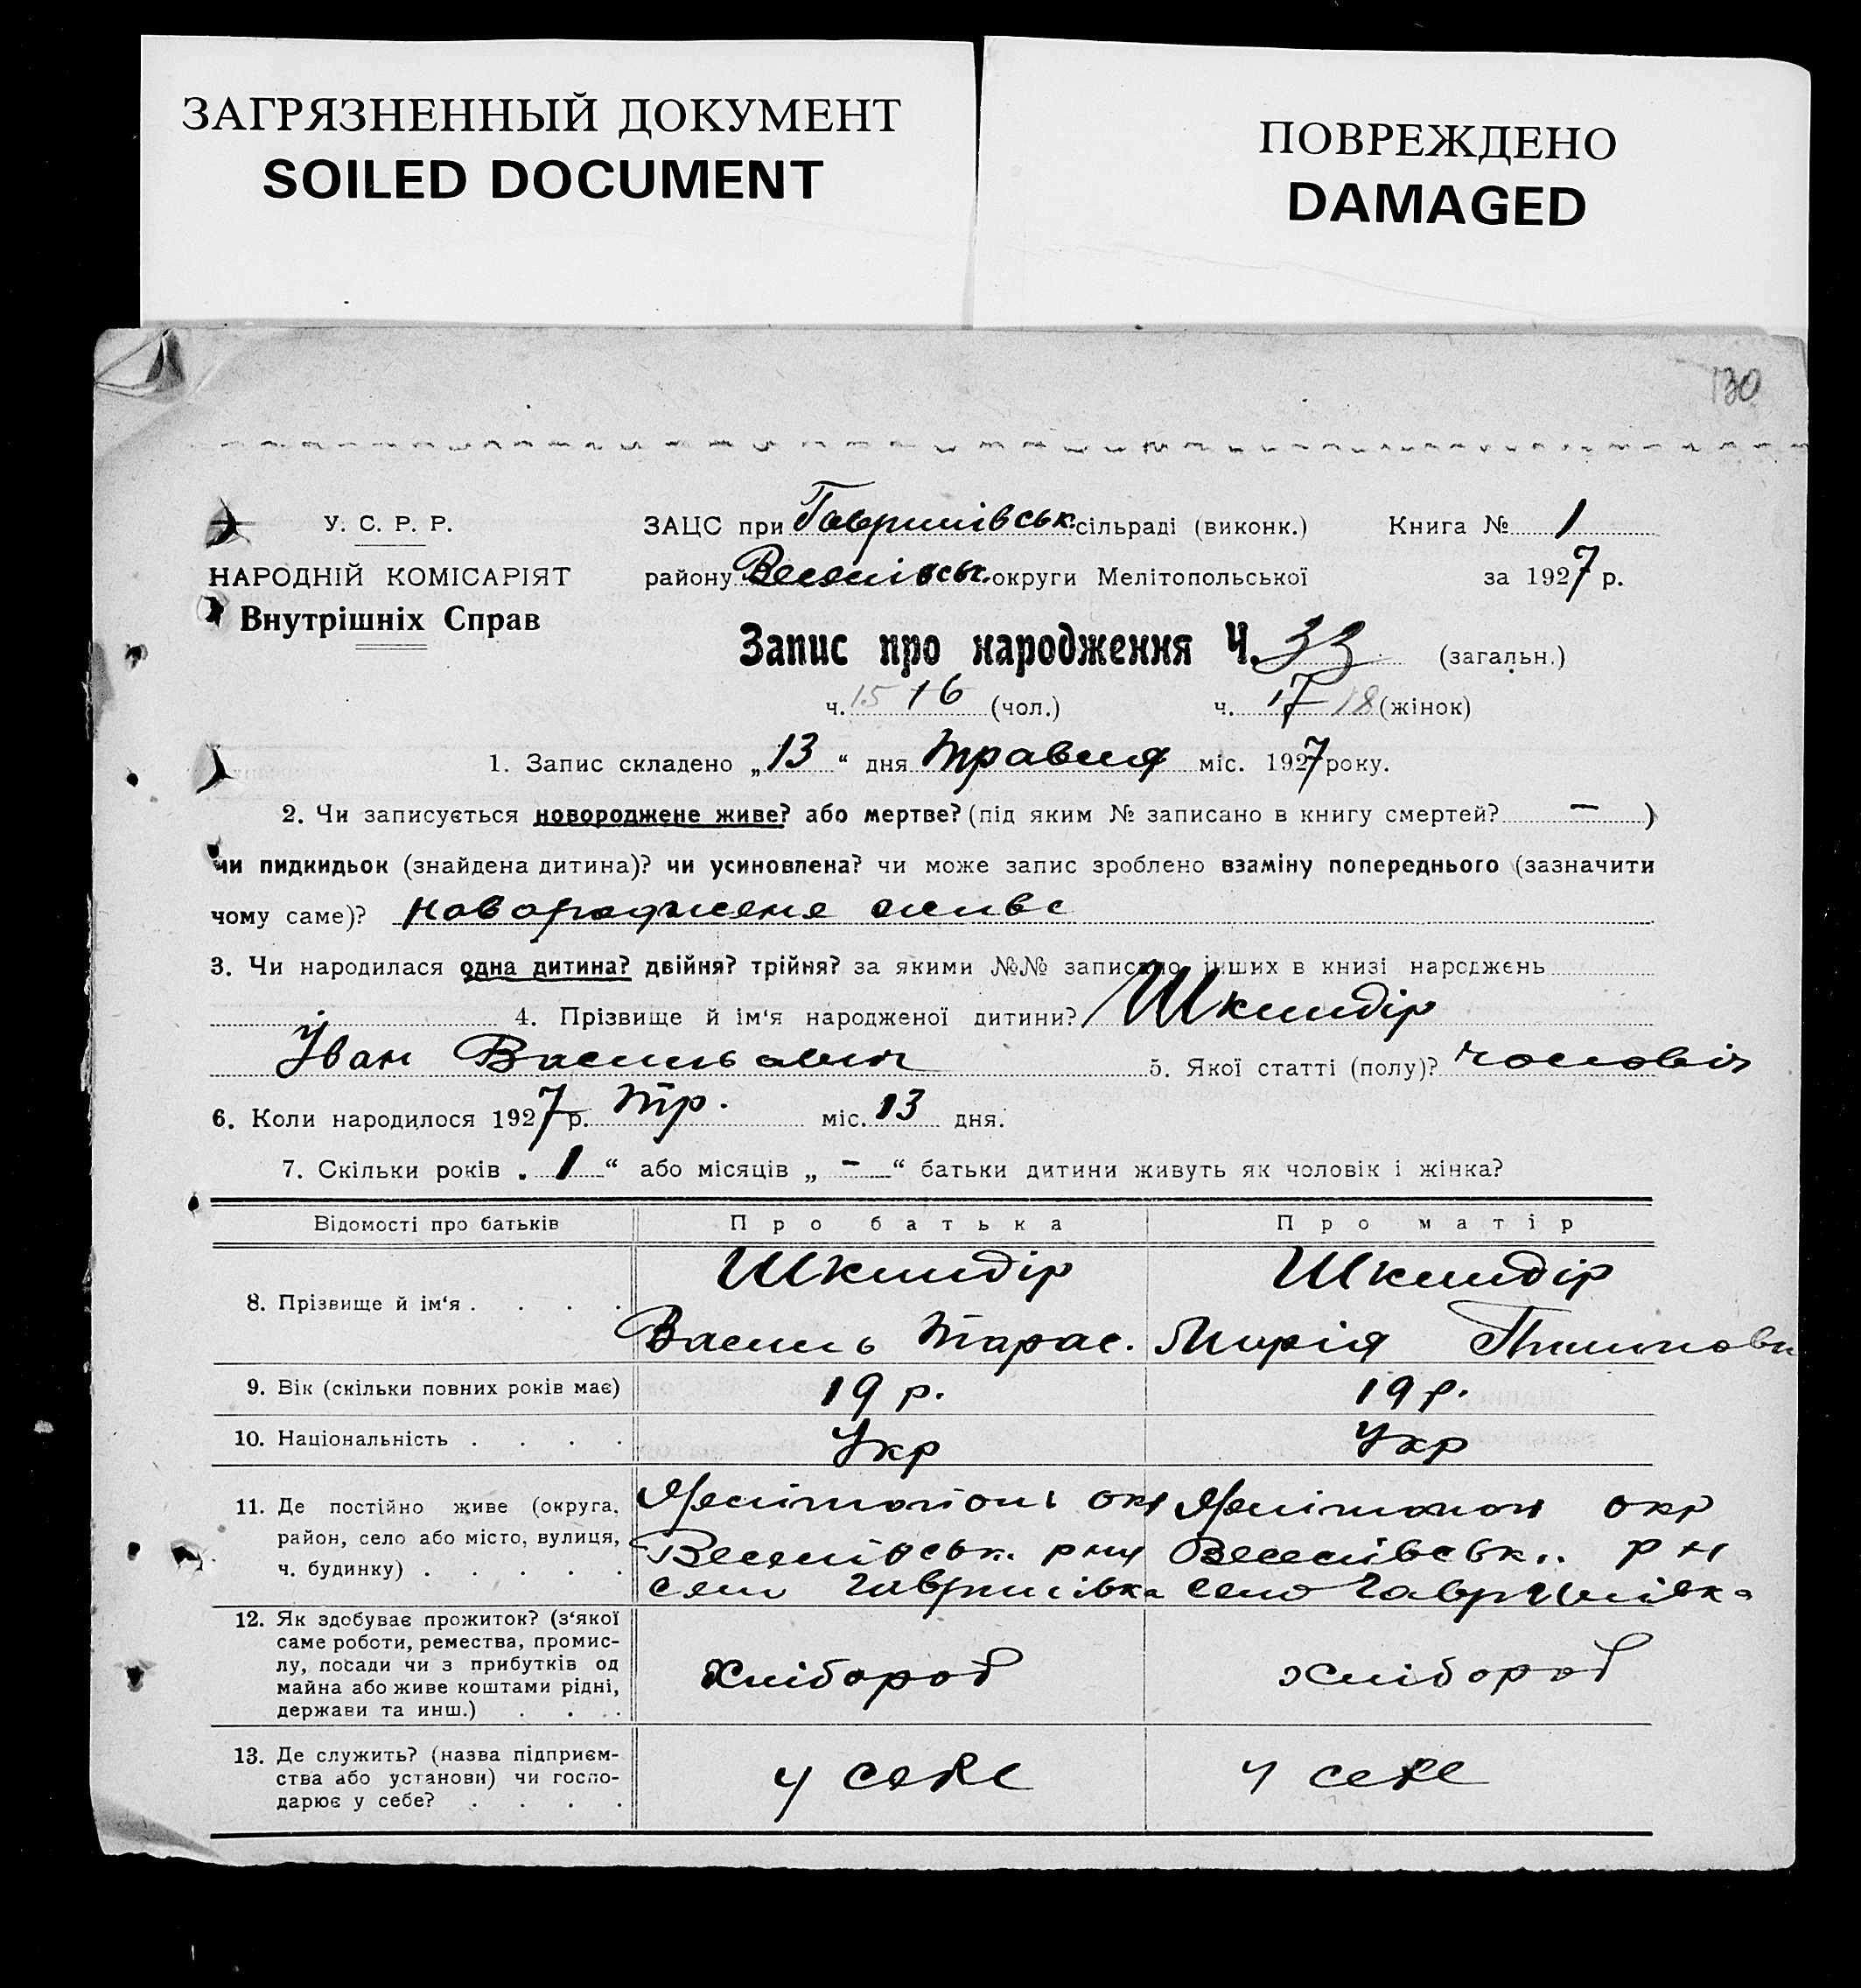 ЗАГРЯЗНЕННЫЙ ДОКУМЕНТ
SOILED DOCUMENT
ПОВРЕЖДЕНО
DAMAGED
130
У. С. Р. Р.
НАРОДНІЙ КОМІСАРІЯТ
Внутрішніх Справ
ЗАЦС при Гаврилівськ. сільраді (виконк.) Книга № 1
району Веселівськ. округи Мелітопольської за 1927 р.
Запис про народження Ч. 33 (загальн.)
ч. 15 16 (чол.) ч. 17 18 (жінок)
1. Запис складено „ 13 “ дня травня міс. 1927 року.
2. Чи записується новороджене живе? або мертве? (під яким № записано в книгу смертей? — )
чи пидкидьок (знайдена дитина)? чи усиновлена? чи може запис зроблено взаміну попереднього (зазначити
чому саме)? новороджене живе
3. Чи народилася одна дитина? двійня? трійня? за якими №№ записано інших в книзі народжень
4. Прізвище й ім‘я народженої дитини? Шкиндір
Іван Васильович 5. Якої статті (полу)? чоловіч
6. Коли народилося 1927 р. тр. міс. 13 дня.
7. Скільки років „ 1 “ або місяців „ - “ батьки дитини живуть як чоловік і жінка?
Відомості про батьків Про батька Про матір
8. Прізвище й ім‘я . . . . Шкиндір Шкиндір
Василь Тарас. Марія
9. Вік (скільки повних років має) 19 р. 19 р.
10. Національність . . . . Укр Укр
11. Де постійно живе (округа, район, село або місто, вулиця, ч. будинку) . . . . .
Мелітопол окр Мелітопол окр
Веселівськ. рну Веселівськ.. рн
село Гаврилівка село Гаврилівка
12. Як здобуває прожиток? (з‘якої
саме роботи, ремества, промис-
лу, посади чи з прибутків од
майна або живе коштами рідні,
держави та инш.) . . . .
хлібороб хлібороб
13. Де служить? (назва підприєм-
ства або установи) чи госпо-
дарює у себе? . . . .
у себе у себе